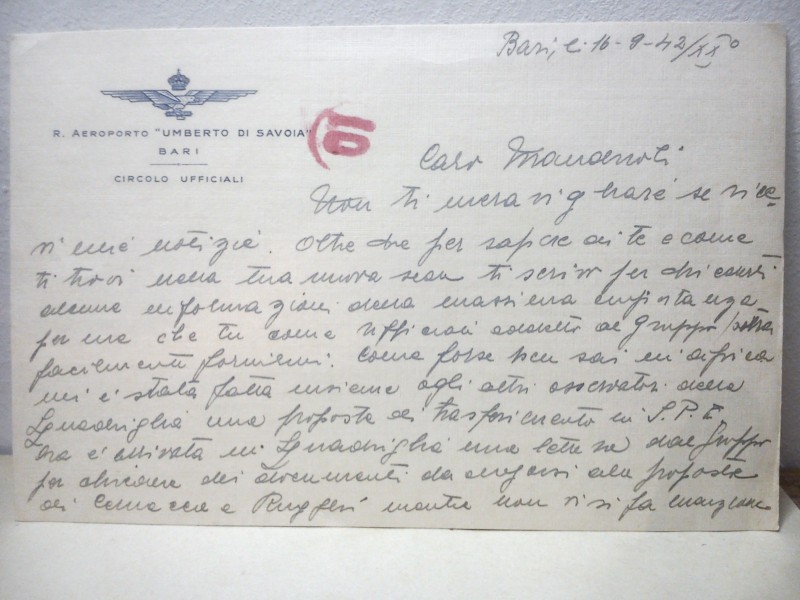 Bari, li 16-9-42/XX°
R. AEROPORTO "UMBERTO DI SAVOIA"
BARI
CIRCOLO UFFICIALI
10
Caro
Non ti meravigliare se rice-
vi mie notizie. Oltre che per sapere di te e come
ti trovi nella tua nuova sede ti scrivo per chiederti
alcune informazioni della massima importanza
per me che tu come ufficiale addetto al Gruppo potrai
facilmente fornirmi. Come forse ben sai in Africa
mi è stata fatta insieme agli altri osservatori della
Squadriglia una proposta di trasferimento in S.P.E.
Ora è arrivata in Squadriglia una lettera dal Gruppo
per chiedere dei documenti da allegarsi alla proposta
di e Ruggeri mentre non vi si fa menzione